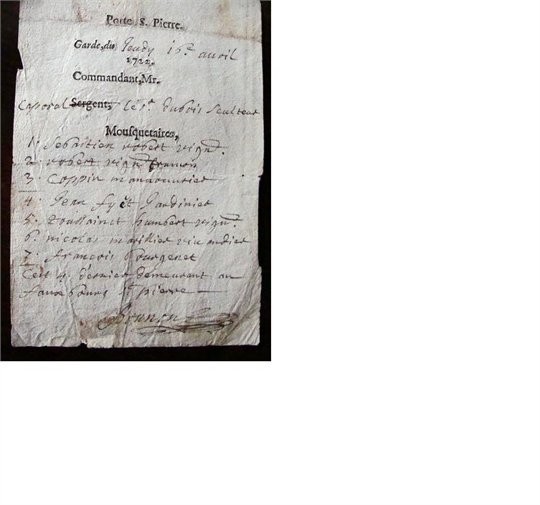 Porte S. Pierre.
Garde, du Jeudy 16e avril
1722.
Commandant, Mr.
Caporal Sergent, le sr. dubois
Mousquetaires,
1. Sebastien robert vign.
2. robert vign
3. Coppin manouvrier
4. Jean Jardinier
5. Toussainct humbert vign.
6. nicolas
7. francois
Cest 4 dernier demeurant au
faux bourg St pierre